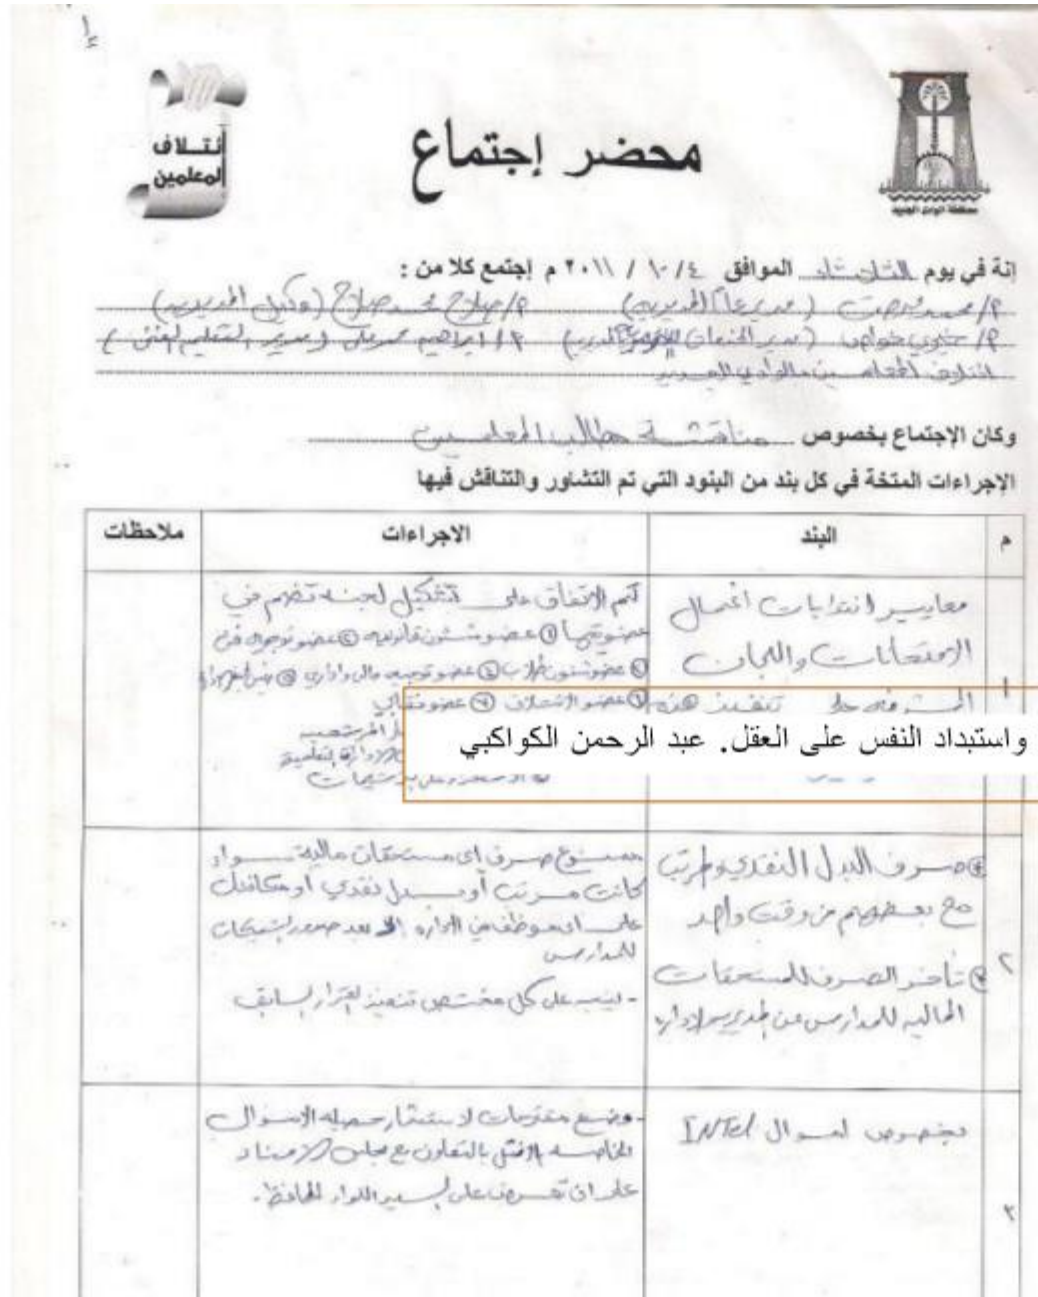 ائتلاف
المعلمين
محضر إجتماع
محافظة الوادى الجديد
إنة في يوم الثلاثاء الموافق ٤/ ١٠ / ٢٠١١ م إجتمع كلا من :
م/ محمد (مدير عام المديرية) م/ صلاح محمد صلاح (وكيل المديرية)
م/ خيري (مدير الخدمات) م/ ابراهيم محمد علي (مدير التعليم الفني)
ائتلاف المعلمين بالوادي الجديد
وكان الإجتماع بخصوص مناقشة مطالب المعلمين
الاجراءات المتخة في كل بند من البنود التي تم التشاور والتناقش فيها
م البند الاجراءات ملاحظات
١
معايير انتدابات أعمال
الامتحانات واللجان
المشرفه على تنفيذ هذه
تم الاتفاق على تشكيل لجنة تضم في
عضويتها ① عضو شئون قانونيه ② عضو توجيه فنى
③ عضو شئون طلاب ④ عضو توجيه مالى وادارى
⑥ عضو الائتلاف ⑦ عضو نقابي
واستبداد النفس على العقل. عبد الرحمن الكواكبي
٢
صرف البدل النقدي والمرتب
مع بعضهم في وقت واحد
تأخر الصرف للمستحقات
الماليه للمدارس من المديرية والاداره
ممنوع صرف اى مستحقات ماليه سواء
كانت مرتب أو بدل نقدي او مكافئات
على اى موظف في الاداره الا بعد صدور شيكات
للمدارس
- ينبه على كل مختص تنفيذ القرار السابق
٣
بخصوص اموال INTEL
- وضع مقترحات لاستثمار حصيله الاموال
الخاصه بالتعاون مع مجلس الامناء
على ان تعرض على السيد اللواء المحافظ.